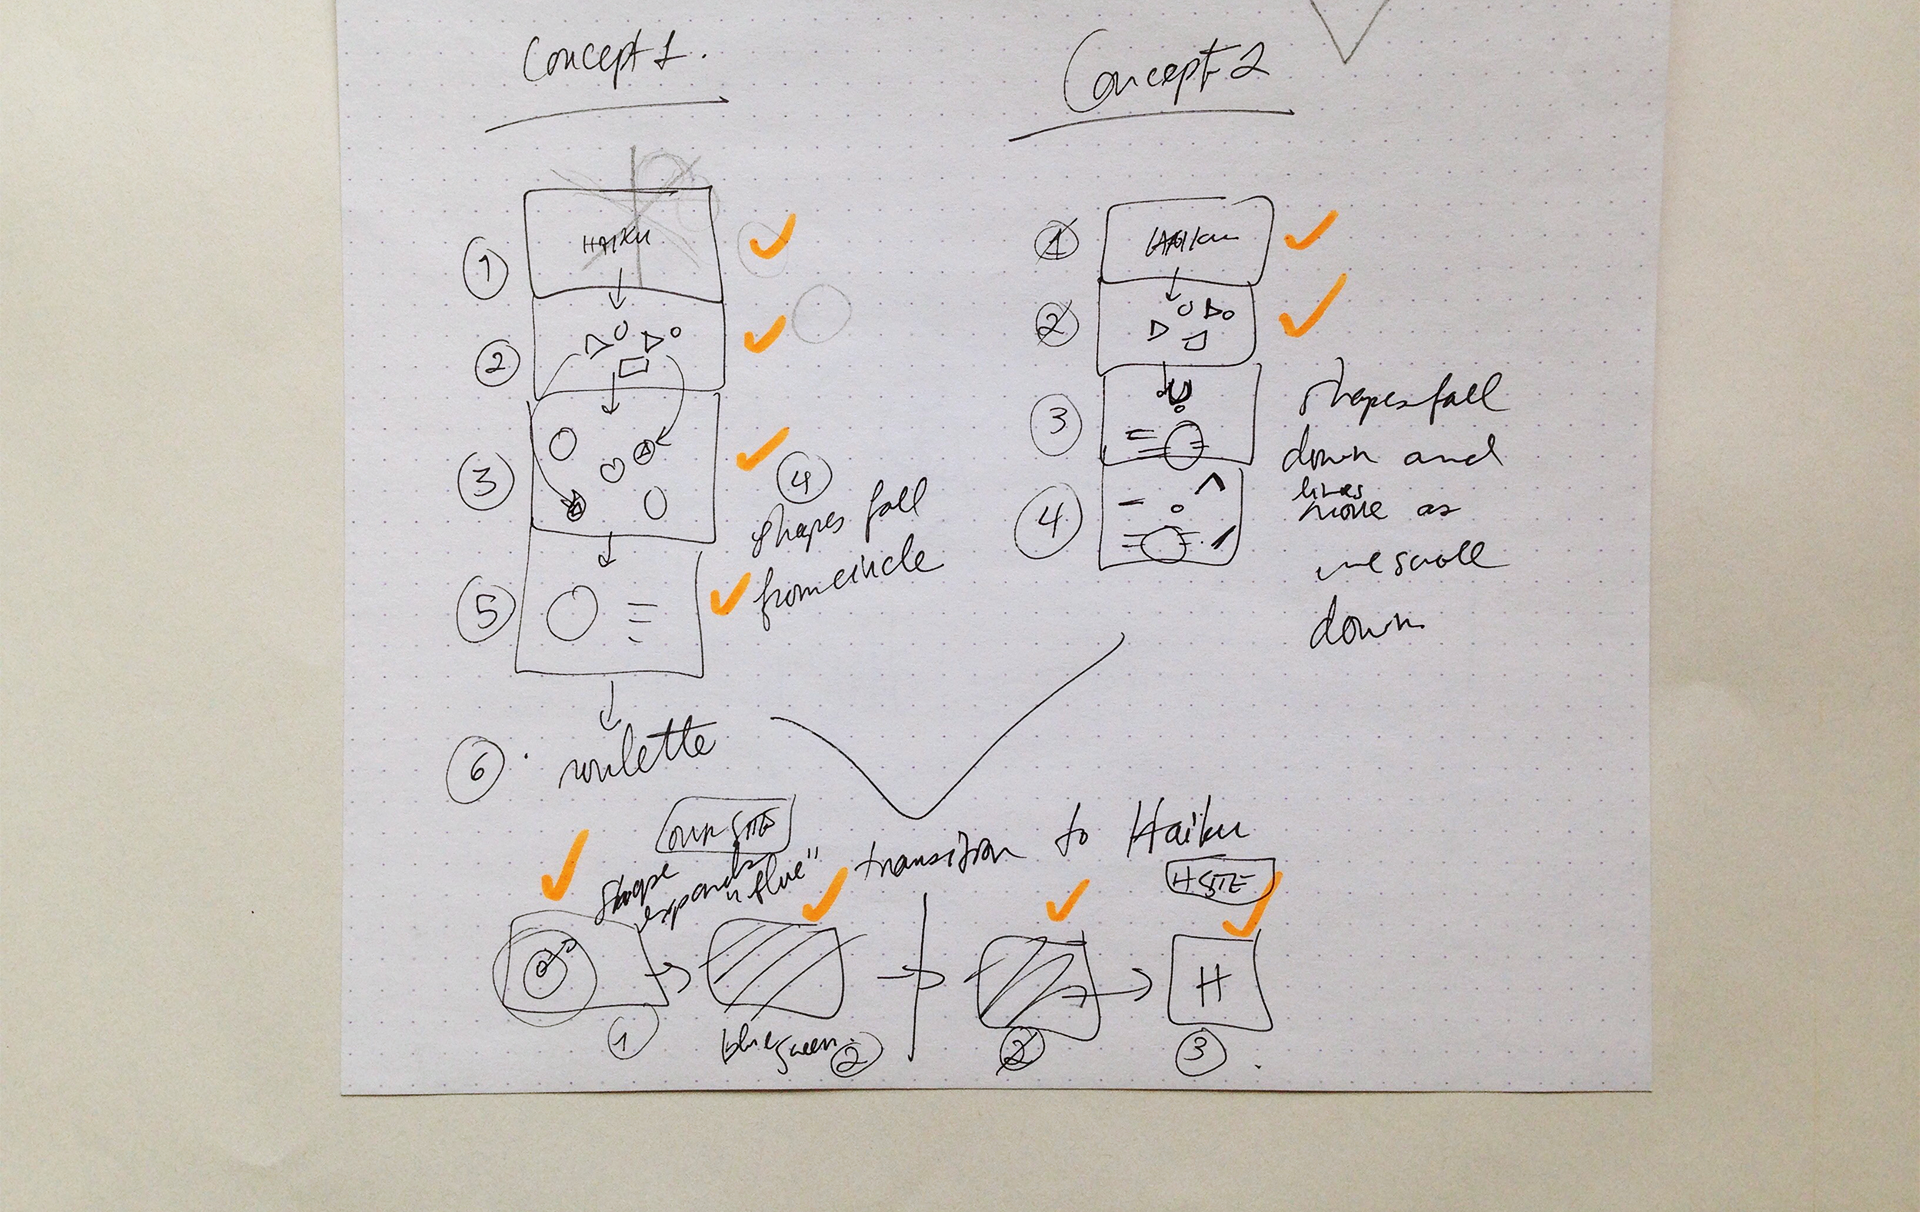 Concept 1.
1
HAIKU
2
3
4
shapes fall
from circle
5
6 . roulette
Concept 2
1
HAIKU
2
3
4
shapes fall
down and
lines
move as
we scroll
down
OUR SITE
shape
expands
transition to Haiku
H SITE
H
1
blue screen. 2
2
3